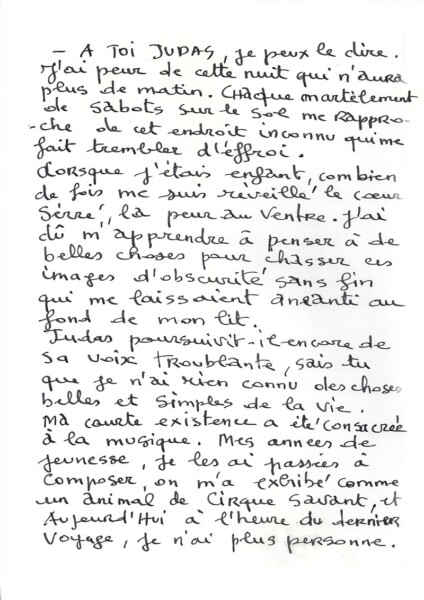 - A Toi JUDAS, je peux le dire.
J'ai peur de cette nuit qui n'aura
plus de matin. Chaque martèlement
de sabots sur le sol me rappro-
-che de cet endroit inconnu qui me
fait trembler d'effroi.
Lorsque j'étais enfant, combien
de fois me suis réveillé le cœur
serré, la peur au ventre. J'ai
dû m'apprendre à penser à de
belles choses pour chasser ces
images d'obscurité sans fin
qui me laissaient anéanti au
fond de mon lit.
Judas poursuivit-il encore de
sa voix troublante, sais tu
que je n'ai rien connu des choses
belles et simples de la vie.
Ma courte existence a été consacrée
à la musique. Mes annees de
jeunesse, je les ai passées à
composer, on m'a exhibé comme
un animal de cirque savant, et
Aujourd'Hui à l'heure du dernier
voyage, je n'ai plus personne.